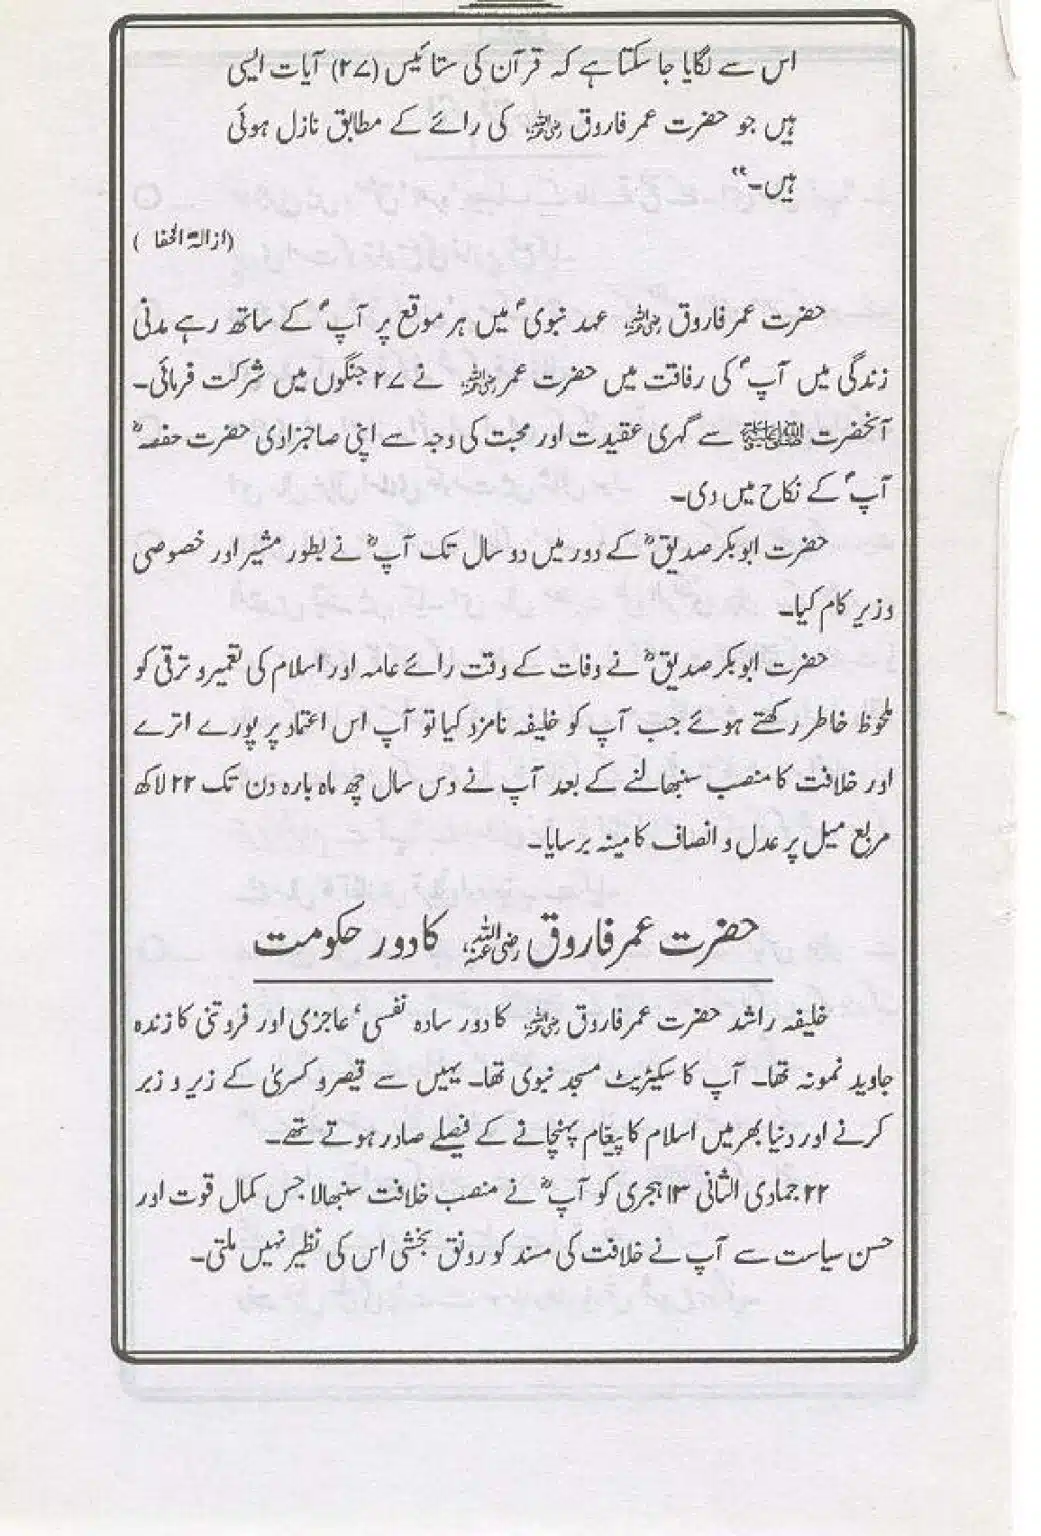 اس سے لگایا جا سکتا ہے کہ قرآن کی ستائیس (۲۷) آیات ایسی
ہیں جو حضرت عمر فاروق رضی اللہ عنہ کی رائے کے مطابق نازل ہوئی
ہیں۔"
(ازالۃ الخفا )
حضرت عمر فاروق رضی اللہ عنہ عہد نبویؐ میں ہر موقع پر آپؐ کے ساتھ رہے مدنی
زندگی میں آپؐ کی رفاقت میں حضرت عمر رضی اللہ عنہ نے ۲۷ جنگوں میں شرکت فرمائی۔
آنحضرت ﷺ سے گہری عقیدت اور محبت کی وجہ سے اپنی صاحبزادی حضرت حفصہؓ
آپؐ کے نکاح میں دی۔
حضرت ابوبکر صدیقؓ کے دور میں دو سال تک آپؓ نے بطور مشیر اور خصوصی
وزیر کام کیا۔
حضرت ابوبکر صدیقؓ نے وفات کے وقت رائے عامہ اور اسلام کی تعمیر و ترقی کو
ملحوظ خاطر رکھتے ہوئے جب آپ کو خلیفہ نامزد کیا تو آپ اس اعتماد پر پورے اترے
اور خلافت کا منصب سنبھالنے کے بعد آپ نے دس سال چھ ماہ بارہ دن تک ۲۲ لاکھ
مربع میل پر عدل و انصاف کا مینہ برسایا۔
حضرت عمر فاروق رضی اللہ عنہ کا دور حکومت
خلیفہ راشد حضرت عمر فاروق رضی اللہ عنہ کا دور سادہ نفسی، عاجزی اور فروتنی کا زندہ
جاوید نمونہ تھا۔ آپ کا سکیٹریٹ مسجد نبوی تھا۔ یہیں سے قیصر و کسریٰ کے زیر و زبر
کرنے اور دنیا بھر میں اسلام کا پیغام پہنچانے کے فیصلے صادر ہوتے تھے۔
۲۲ جمادی الثانی ۱۳ ہجری کو آپؓ نے منصب خلافت سنبھالا جس کمال قوت اور
حسن سیاست سے آپ نے خلافت کی مسند کو رونق بخشی اس کی نظیر نہیں ملتی۔